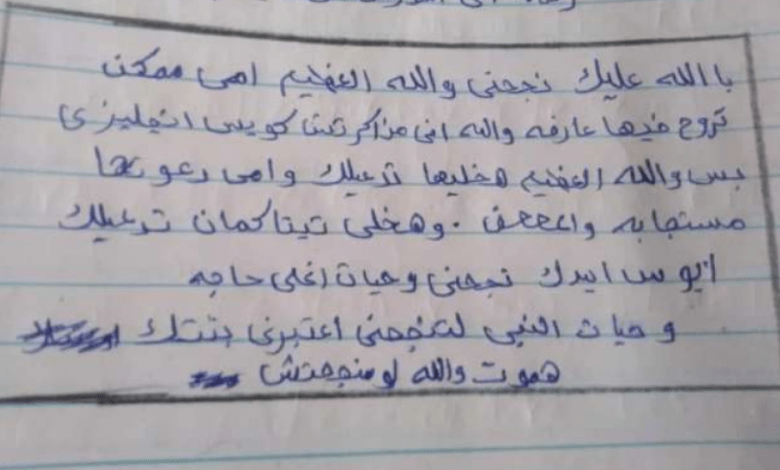 باالله عليك نجحنى والله العظيم امى ممكن
تروح فيها عارفه والله انى مذاكرتش كويس انجليزى
بس والله العظيم هخليها تدعيلك وامى دعوتها
مستجابه وهخلى تيتا كمان تدعيلك
ابوس ايدك نجحنى وحيات اغلى حاجه
وحيات النبى لتنجحنى اعتبرنى بنتك
هموت والله لو منجحتش